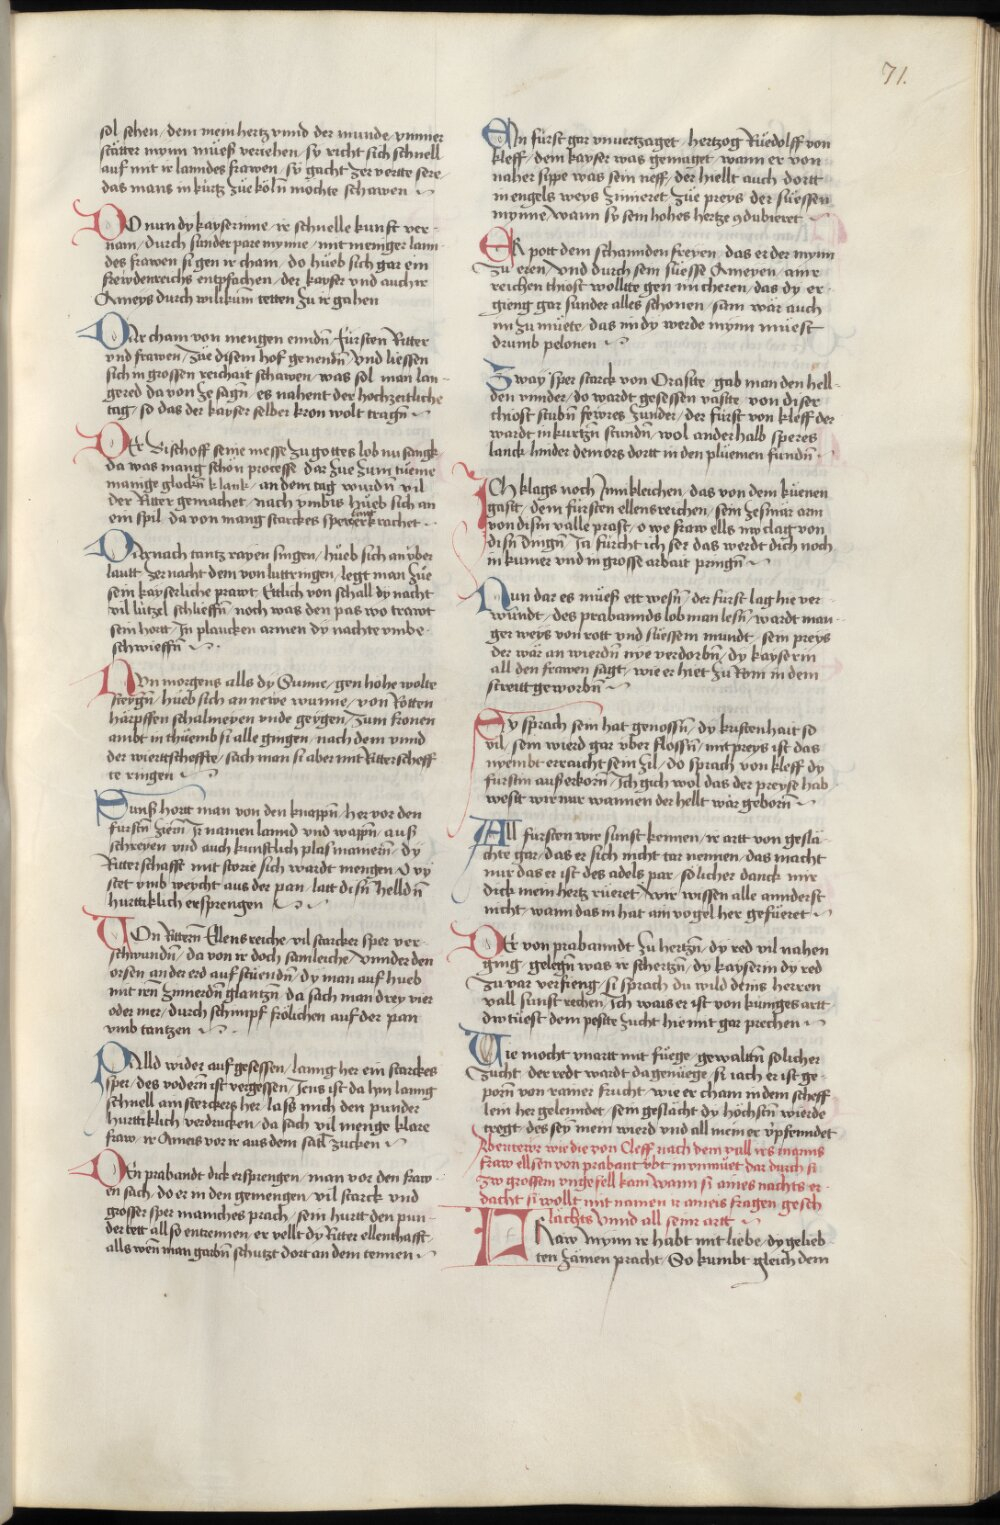 71.
sol sehen / dem mein hertz vnnd der munde / ymmer
stätter mynn müeß veriehen / sy richt sich schnell
auf mit ir lanndes frawen / sy gacht zer vertte sere /
das mans in kürtz züe köln möchte schawen
DO nun dy kayserinne / ir schnelle kunft ver
nam / durch sunder pare mynne / mit meniger lann
des frawen si gen ir cham / do hüeb sich gar ein
frewdenreichs entpfachen / der kayser vnd auch ir
Ameys durch wilikum tetten zu ir gahen
Dar cham von mengen enndn̄ / Fürsten Ritter
vnd frawen / züe disem hof genendn̄ / vnd liessen
sich in grossen reichait schawen / was sol man lan
gered da von ze sagn̄ / es nahent der hochzeitliche
tag / so das der kayser selber kron wolt tragn̄
Der Bischoff seine messe zu gottes lob nu sangk
da was mang schön processe dar züe zum tüeme
manige glockn̄ klank / an dem tag wurdn̄ vil
der Ritter gemachet / nach ymbis hüeb sich an
ein spil / da von mang starckes sper krachet
Dar nach tantz rayen singen / hüeb sich an vber
lautt / zer nacht dem von luttringen / legt man züe
sein kayserliche prawt / Ettlich von schall dy nacht
vil lützel schlieffn̄ / noch was den pas wo trawt
sein hortt / Jn plancken armen dy nachte vmbe
schwieffn̄
Nvn morgens alls dy Sunne / gen hohe wolte
steygn̄ / hüeb sich an newe wunne / von Rotten
härpffen schalmeyen vnde geygen / Zum fronen
ambt in thüemb si alle gingen / nach dem vnnd
der wiertt scheffte / sach man si aber mit Ritterscheff
te ringen
Sunst hortt man von den knappn̄ / her vor den
fürstn̄ ziern̄ / Jr namen lannd vnd wappn̄ / auß
schreyen vnd auch kunstlich plas'maniern̄ / dy
Ritterschafft mit storie sich wardt mengen / O vy
stet vmb weycht aus der pan / latt disn̄ helldn̄
hurttiklich ersprengen
Von Rittern̄ Ellens reiche / vil starcker sper ver
schwundn̄ / da von ir doch samleiche / vnnder den
orsen an der erd auf stüendn̄ / dy man auf hueb
mit irn̄ zymerdn̄ glantzn̄ / da sach man drey vier
oder mer / durch schimpf frölichen auf der pan
vmb tantzen
Palld wider auf gesessen / lanng her ein starckes
sper / des vodern̄ ist vergessen / Jenis ist da hin lanng
schnell am sterckers her / lass mich den punder
hurttiklich verdrucken / da sach vil menge klare
fraw / ir Ameis vor ir aus dem satl zucken
Den prabandt dick ersprengen / man vor den fraw
en sach / do er in den gemengen / vil starck vnd
grosser sper manches prach / sein hurtt den pun
der tett allso entrennen / er vellt dy Ritter ellenthafft
alls wen man garbn̄ schutzt dort an dem tennen
Ain fürst gar vnuertzaget / hertzog Rüedolff von
kleff / dem kayser was gemaget / wann er von
naher sippe was sein neff / der hiellt auch dortt
in engels weys zimieret / züe preys der süessen
mynne / wann sy sein hohes hertze 9dubieret
ER pott dem schannden freyen / das er der mynn
zu eren / Vnd durch sein süesse Ameyen / ain r
reichen thiost wollte gen im cheren / das dy er
gieng gar sunder alles schonen / sam wär auch
im zu müete / das in dy werde mynn müest
drumb pelonen
Zway sper starck von Orastte / gab man den hell
den vnnder / do wardt gesessen vaste / von diser
thiost stubn̄ fewres zunder / der fürst von kleff der
wardt in kurtzn̄ stundn̄ / wol anderhalb speres
lanck hinder dem ors dortt in den plüemen fundn̄
ICh klags noch Jnnikleichen / das von dem küenen
gastt / dem fürsten ellensreichen / sein zesmär arm
von disn̄ valle prast / o we fraw ells nw clag von
disn̄ dingn̄ / Ja fürcht ich ser das werdt dich noch
in kumer vnd in grosse arbait pringn̄
Nun dar es müeß ett wesn̄ / der fürst lag hie ver
wundt / des prabannds lob man lesn̄ / wardt man
ger weys von rott vnd süessem mundt / sein preys
der wär an wierdn̄ nye verdorbn̄ / dy kayserin
all den frawen sagt / wie er hiet zu Rom in dem
streitt geworbn̄
Sy sprach sein hat genossn̄ / dy kristenhait so
vil / sein wierd gar vber flossn̄ / mit preys ist das
nyembt erraicht sein zil / do sprach von kleff dy
fürstin außerkorn̄ / Jch gich wol das der preyse hab
west wir nur wannen der hellt wär geborn̄
All fürsten wir sunst kennen / ir artt von geslä
chte gar / das er sich nicht tar nennen / das macht
nur das er ist des adels par / solicher danck mir
dick mein hertz rüeret / wir wissen alle annderst
nicht / wann das in hat ain vogel her gefüeret
Der von prabanndt zu hertzn̄ / dy red vil nahen
ging / gelegn̄ was ir schertzn̄ / dy kayserin dy red
zu var verfieng / si sprach du wild deins herren
vall sunst rechen / Jch wais er ist von künges artt
dw tüest dem peste zucht hie mit gar prechen
Wie mocht vnartt mit füege / gewaltn̄ solicher
zucht / der redt wardt da genüege / si iach er ist ge
porn̄ von rainer frucht / wie er cham in dem scheff
lein her gelenndet / sein geslächt dy höchstn̄ wierde
tregt / des sey mein wierd und all mein er v'pfenndet
Abentewr wie die von Cleff nach dem vall irs manns
fraw ellsen von prabant vbt in vnmuet dar durch si
zw grossem vngefell kam wann si aines nachts er
dacht si wollt mit namen ir ameis fragen gesch
lächts vnnd all seinr artt
FRaw mynn ir habt mit liebe / dy gelieb
ten zämen pracht / So kumbt gleich dem